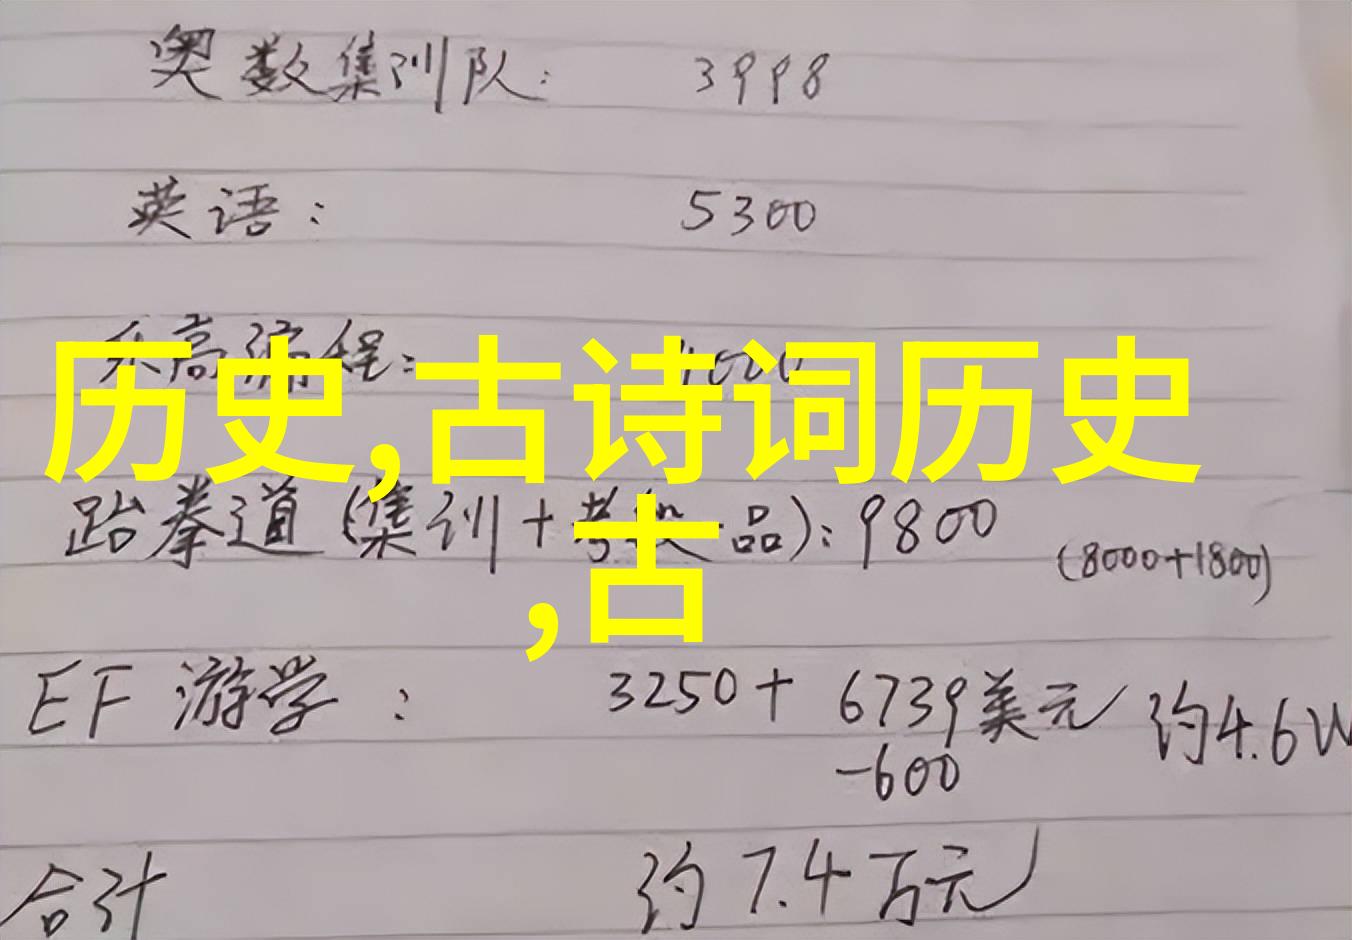 奥数集训队: 3998
英语: 5300
乐高编程: 4000
历史,古诗词历史
跆拳道(集训+考级一品): 9800 (8000+1800)
,古
EF 游学: 3250+ 6739美元 约4.6W
-600
合计 约7.4万元